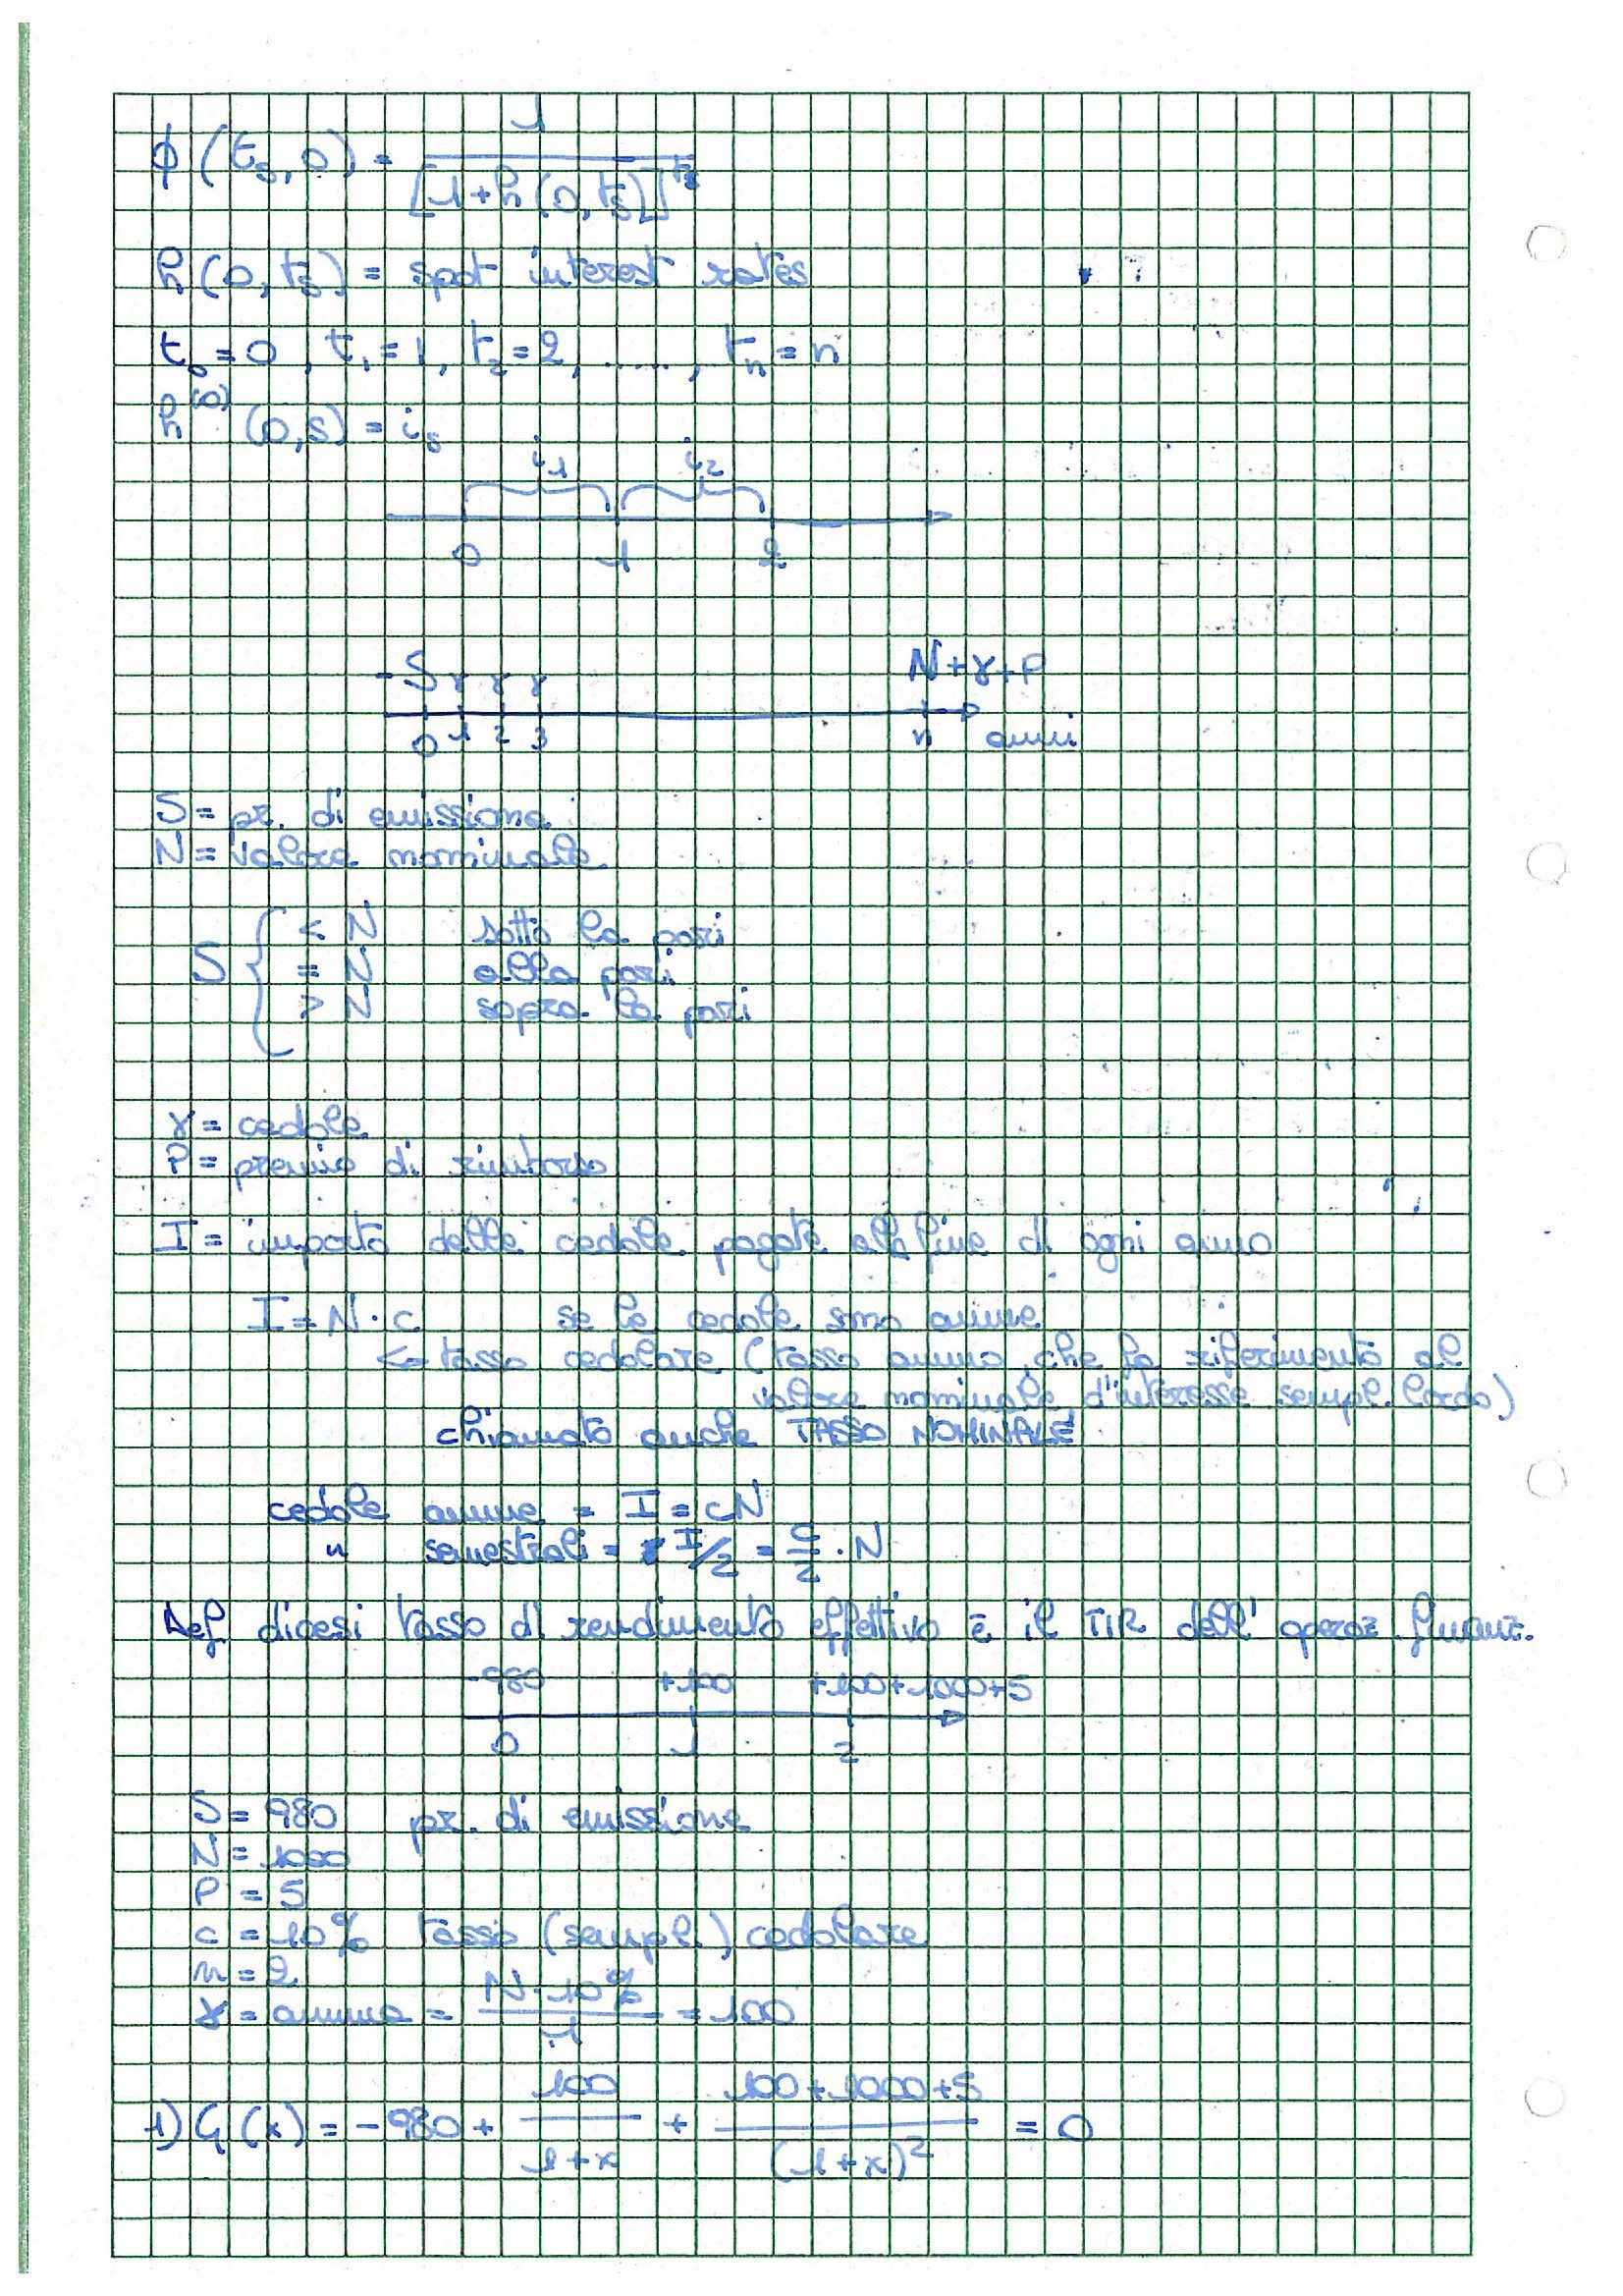 ϕ(t_s,0) = 1 / [1+h(0,t_s)]^{t_s}
h(0,t_s) = spot interest rates
t_0=0, t_1=1, t_2=2, ....., t_n=n
h^{(0)}(0,s) = i_s
i_1 i_2
0 1 2
-S γ γ γ N+γ+P
0 1 2 3 n anni
S = pr. di emissione
N = valore nominale
S { < N sotto la pari
= N alla pari
> N sopra la pari
γ = cedole
P = premio di rimborso
I = importo delle cedole pagate alla fine di ogni anno
I = N · c se le cedole sono annue
↳ tasso cedolare (tasso annuo, che fa riferimento al
valore nominale, d'interesse sempl. lordo)
chiamato anche TASSO NOMINALE
cedole annue = I = cN
" semestrali = I/2 = c/2 · N
Def dicesi tasso di rendimento effettivo è il TIR dell' operaz. finanz.
-980 +100 +100+1000+5
0 1 2
S = 980 pr. di emissione
N = 1000
P = 5
c = 10% tasso (sempl.) cedolare
n = 2
γ = annua = N·10% / 1 = 100
1) G(x) = -980 + 100 / (1+x) + (100+1000+5) / (1+x)^2 = 0